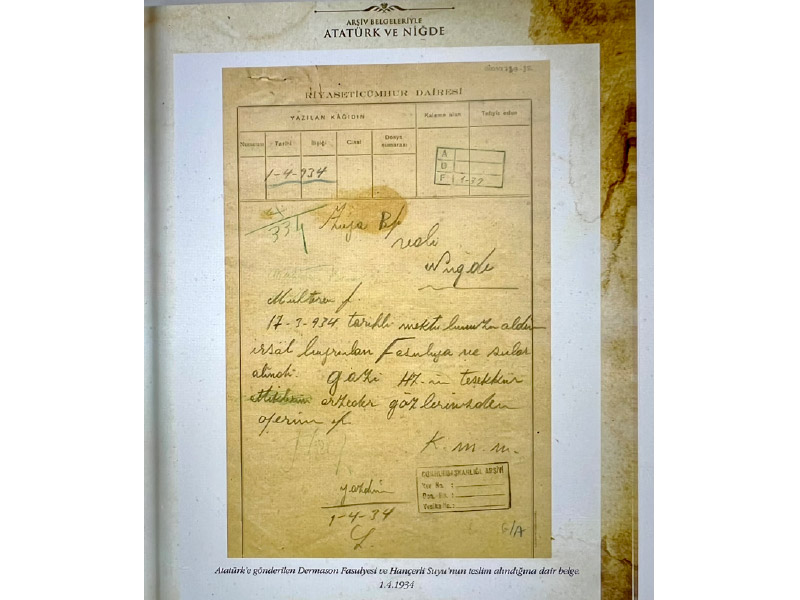 ARŞİV BELGELERİYLE
ATATÜRK VE NİĞDE
RİYASETİCÜMHUR DAİRESİ
YAZILAN KÂĞIDIN
Kaleme alan
Tebyiz eden
Numarası
Tarihi
İlişiği
Cinsi
Dosya numarası
1-4-934
A
D
F 1-37
334
Ziya Bf.
Niğde
Muhterem f.
17-3-934 tarihli mektubunuzu aldım
irsal buyrulan Fasulya ve sular
alındı. gazi Hz-nin teşekkür
ettiklerini arzeder gözlerinizden
öperim ef.
K. m. m.
yazdım
1-4-34
CUMHURBAŞKANLIĞI ARŞİVİ
Yer No. :
Dos. No. :
Vesika No. :
G/A
Atatürk'e gönderilen Dermason Fasulyesi ve Hançerli Suyu'nun teslim alındığına dair belge.
1.4.1934